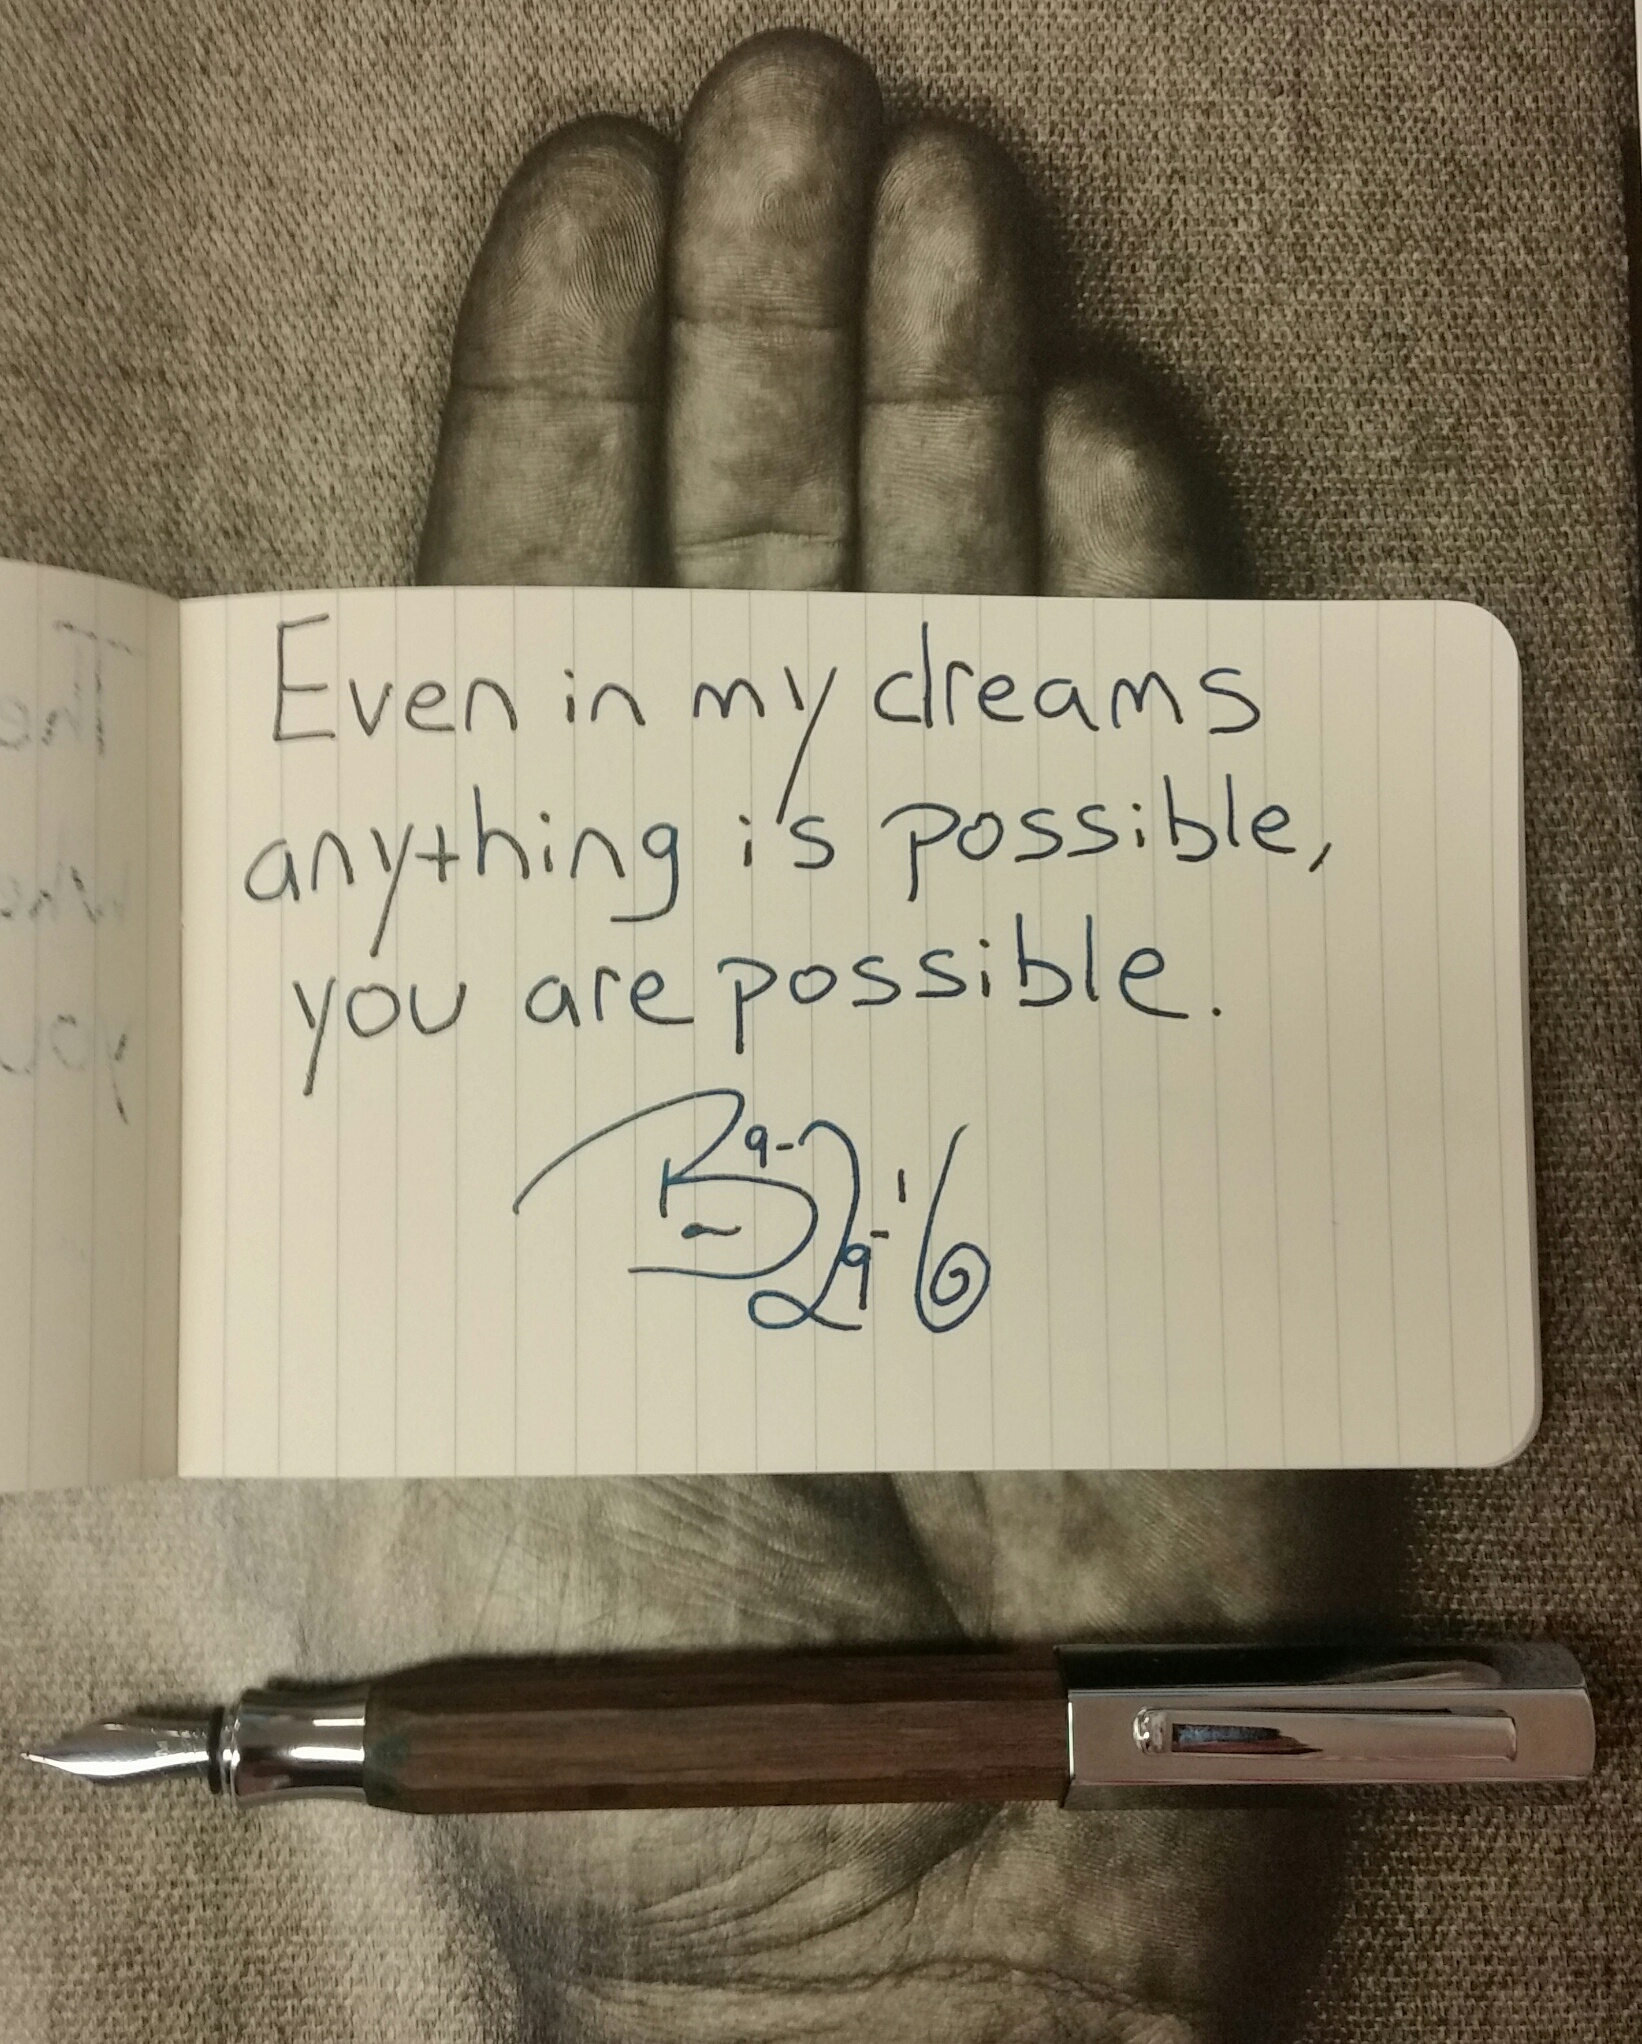 Even in my dreams
anything is possible,
you are possible.
9-29-16